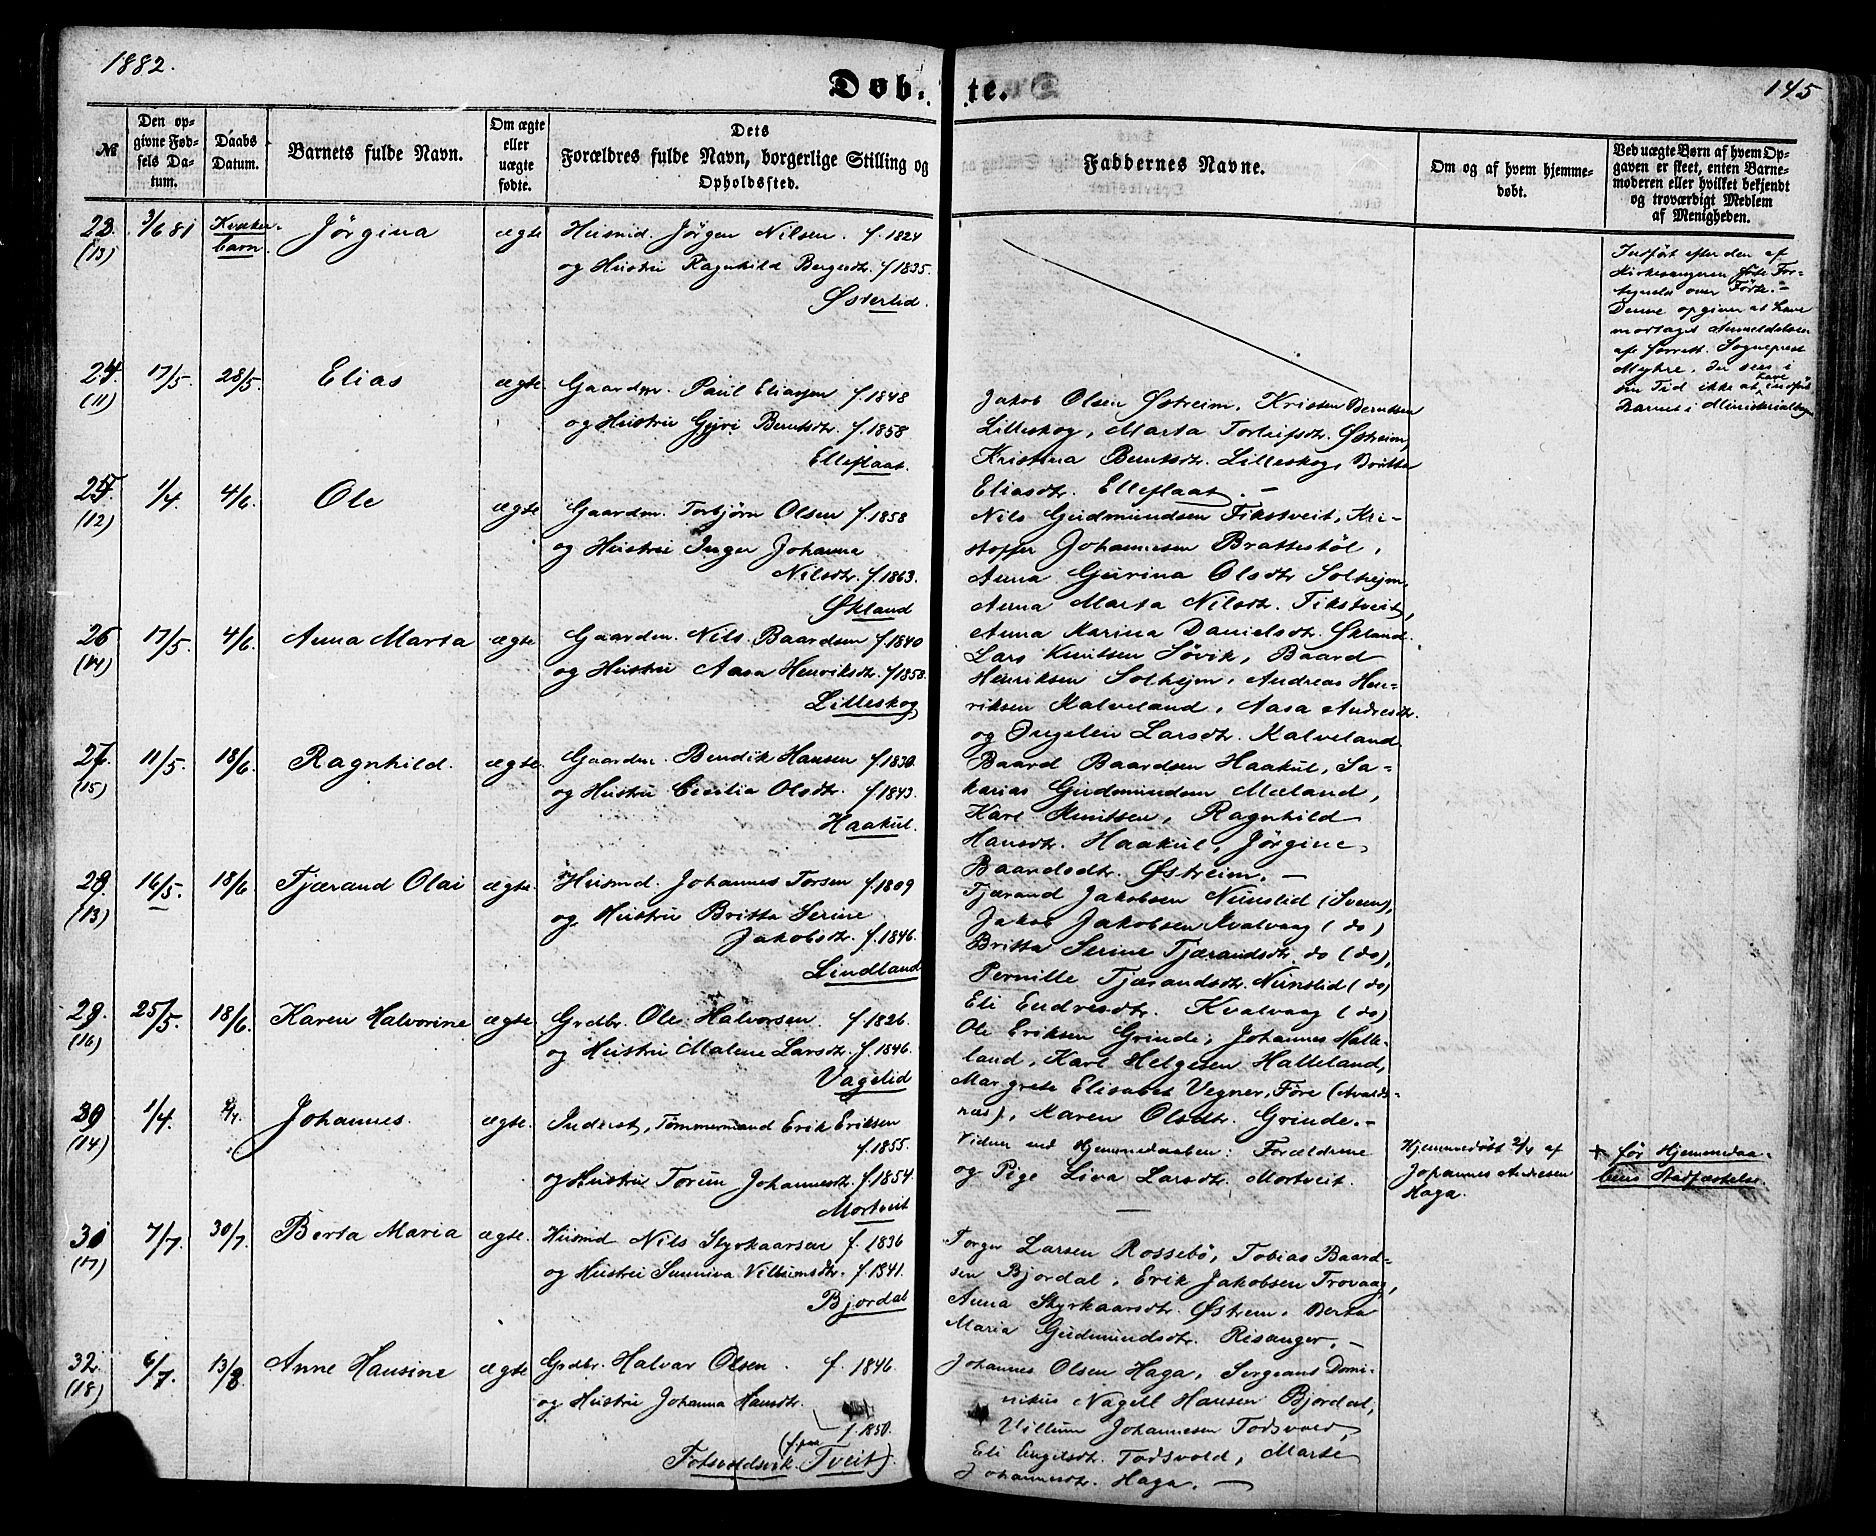 1882.
145
Døb. te.
№
Den op-
givne Fød-
sels Da-
tum.
Daabs
Datum.
Barnets fulde Navn.
Om ægte
eller
uægte
fødte.
Dets
Forældres fulde Navn, borgerlige Stilling og
Opholdssted.
Faddernes Navne.
Om og af hvem hjemme-
døbt.
Ved uægte Børn af hvem Op-
gaven er skeet, enten Barne-
moderen eller hvilket bekjendt
og troværdigt Medlem
af Menigheden.
23. 3/6 81 Kvæker- Jörgina ægte Husmd. Jörgen Nilsen. f. 1824
(13) barn. og Hustru Ragnhild Bergesdtr. f 1835.
Østerlid.
Indført efter den af
Kirkesangeren førte For-
tegnelse over Førte.-
Denne opgiver at have
mortaget Anmeldelsen
af Sogneprest
Myhre, der sees i
sin Tid ikke at have indført
Barnet i Ministerialbogen
24. 17/5. 28/5. Elias ægte Gaardm. Paul Eliassen f. 1848
(11) og Hustru Gyri Berntsdtr. f. 1858
Elleflaat.
Jakob Olsen Østreim, Kristen Berntsen
Lilleskog, Marta Torleifsdtr. Østreim,
Kristina Berntsdtr. Lilleskog, Britta
Eliasdtr. Elleflaat. -
25. 1/4. 4/6. Ole ægte Gaardm. Torbjørn Olsen f. 1858
(12) og Hustru Inger Johanna
Nilsdtr. f. 1863.
Økland
Nils Gudmundsen Fikstveit, Kri-
stoffer Johannesen Brattestöl,
Anna Gurina Olsdtr Solheim,
Anna Marta Nilsdtr. Fikstveit,
Anna Marina Danielsdtr. Økland.
26 17/5. 4/6. Anna Marta ægte Gaardm. Nils Baardsen f. 1840
(14) og Hustru Aasa Henriksdtr. f 1858.
Lilleskog
Lars Knutsen Søvik, Baard
Henriksen Solhejm, Andreas Hen-
riksen Kalveland, Aasa Andresdtr.
og Ingelin Larsdtr. Kalveland.
27. 11/5. 18/6. Ragnhild. ægte. Gaardm. Bendik Hansen f 1830.
(15) og Hustru Cecilia Olsdtr. f. 1843.
Haakul.
Baard Baardsen Haakul, Sa-
karias Gudmundsen Mæland,
Karl Knutsen, Ragnhild
Hansdtr. Haakul, Jørgine
Baardsdtr. Østreim. -
28. 16/5. 18/6. Tjærand Olai ægte. Husmd. Johannes Torsen f 1809
(13) og Hustru Britta Serine
Jakobsdtr. f. 1846.
Lindland
Tjærand Jakobsen Nunslid (Sveen),
Jakob Jakobsen Kvalvaag (do)
Britta Serine Tjærandsdtr. do (do),
Pernille Tjærandsdtr. Nunslid (do)
Eli Endresdtr. Kvalvaag (do)
29. 25/5. 18/6. Karen Halvorine ægte. Grdbr. Ole Halvorsen. f. 1826.
(16) og Hustru Malene Larsdtr. f. 1846.
Vagelid
Ole Eriksen Grinde, Johannes Halle-
land, Karl Helgesen Halleland,
Margrete Elisabet Vegner, Føre (Avalds-
næs), Maren Olsdtr. Grinde. -
30 1/4. 2/4. Johannes. ægte. Inderst, Tømmermand Erik Eriksen
(14) f. 1855.
og Hustru Torun Johannesdtr. f 1854.
Mortveit
Vidner ved Hjemmedaaben: Forældrene
og Pige Liva Larsdtr. Mortveit.
—
Hjemmedøbt 2/4 af
Johannes Andresen
Haga.
+ før Hjemmedaa-
bens Stadfæstelse.
31 7/7. 30/7. Berta Maria ægte. Husmd Nils Styrkaarsen f. 1836
(17) og Hustru Sunniva Villumsdtr. f. 1841.
Bjordal
Torger Larsen Rossebø, Tobias Baard-
sen Bjordal, Erik Jakobsen Trovaag,
Anna Styrkaarsdtr. Østrem, Berta
Maria Gudmundsdtr. Risanger. -
32. 6/7. 13/8 Anne Hansine ægte Grdbr. Halvar Olsen. f. 1846.
(18) og Hustru Johanna Hansdtr.
f. 1850.
Totsvoldsvik (f. paa Tveit).
Johannes Olsen Haga, Sergeant Domi-
nikus Nagell Hansen Bjordal,
Villum Johannesen Todsvold,
Eli Engelsdtr. Todsvold, Marte
Johannesdtr. Haga. —